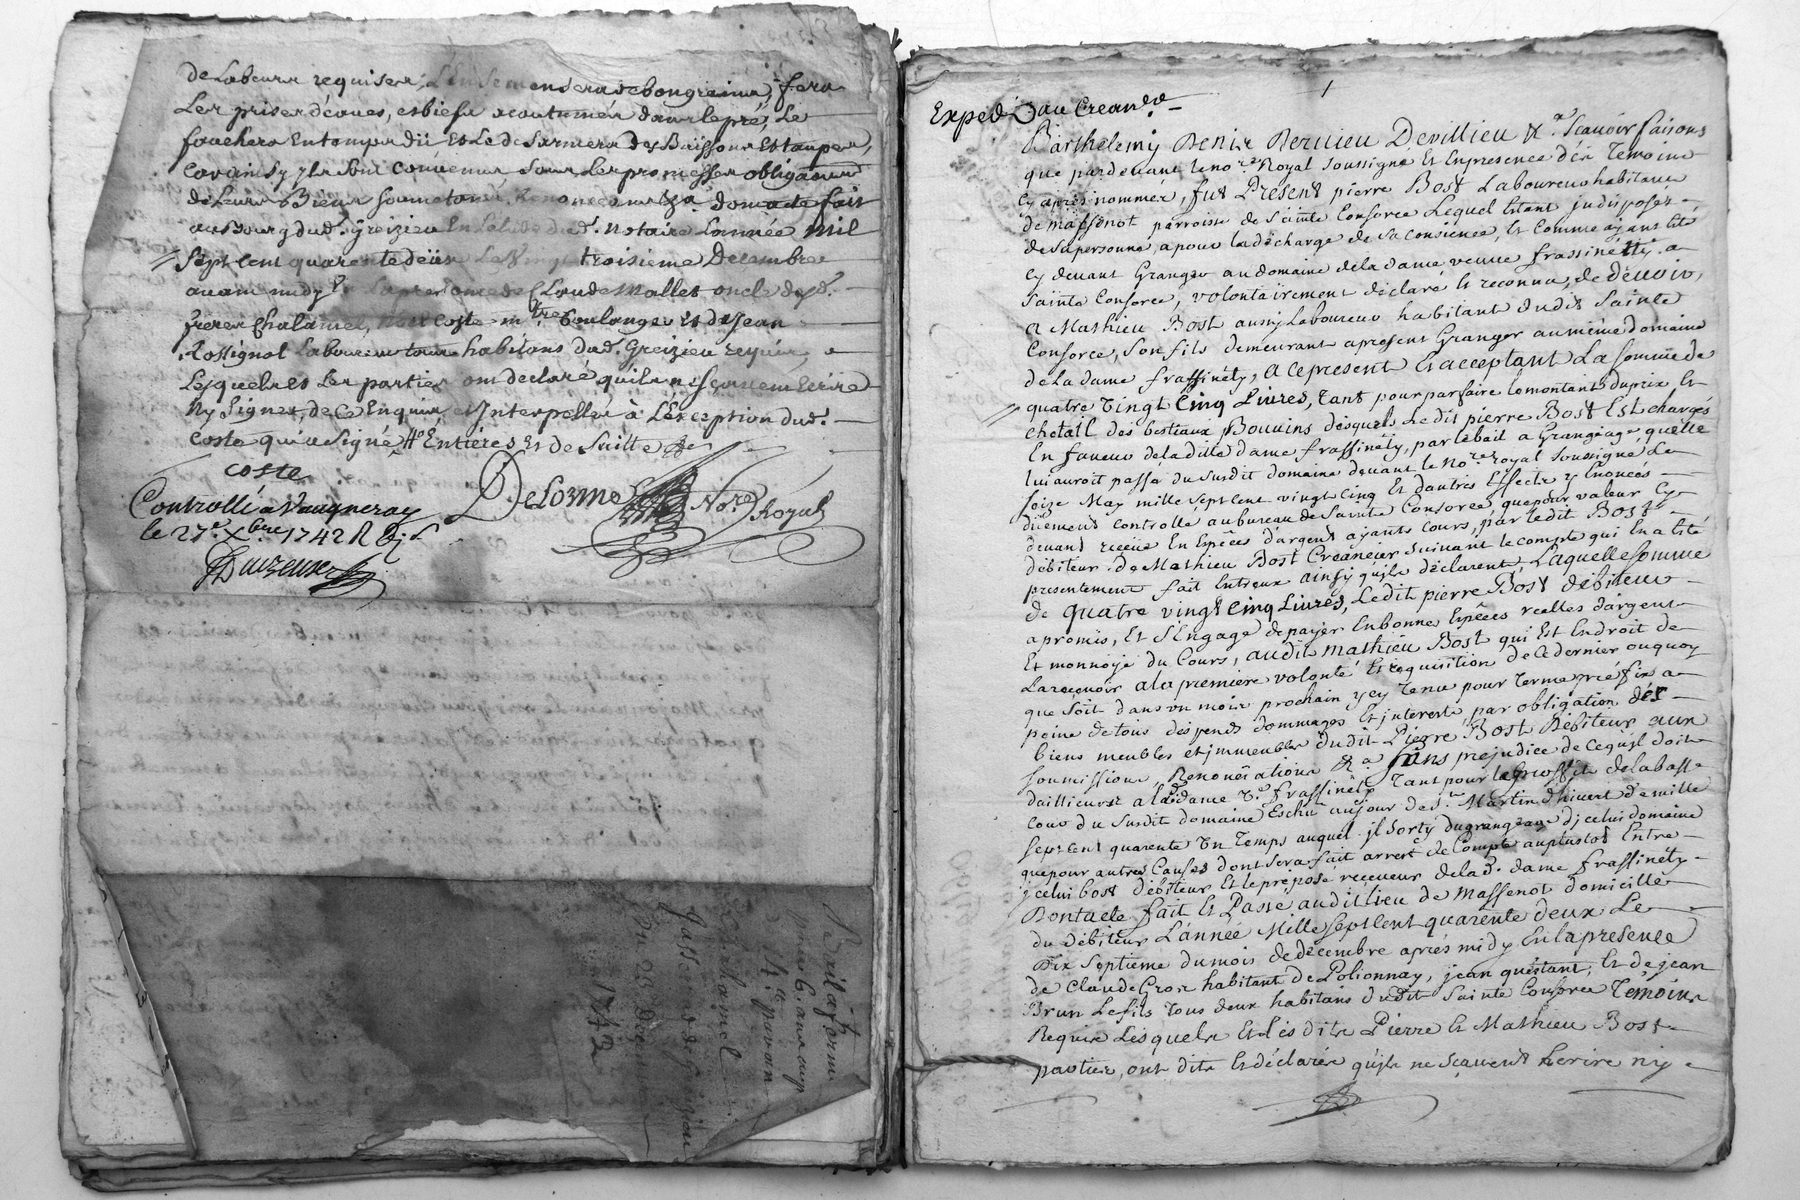 de Labeurs requises, L'ensemensera de bon grains, fera
Les prises d'eaues, et biefs acoutumés dans le pré, Le
fauchera En tems dü Et Le deSarniera des Buissons Et taupes,
Car ainsy ils Sont convenus Sous Les promesses obligaõns
de Leurs Biens soumetans, Renonceans &ª. dont acte fait
au Bourg dud. Greizieu En L'Etude dud. notaire L'année mil
Sept Cent quarente deüx Le Vingt troisieme Decembre
avant midy En La presence de Claude Mallet oncle desd.
freres Chalamel, Coste mtre Boulanger Et de Jean
Rossignol Laboureur tous habitans dud. Greizieu requis
Lesquels et Les parties ont declaré qu'ils ne sçavent Ecrire
Ny Signer, de Ce Enquis, et Interpellés à L'Exception dud.
Coste qui a Signé, Entieres Et de Suitte
Coste
DeLorme Nore. Royal
Controllé a Vaugneray
le 27e. Xbre 1742 R
Bail a ferme
pour 6. ans
Chalamel
Du 23 Decembre
1742
1
Exped. au Crean.er
Barthelemy Denis Deruieu Devillieu &ª. Scavoir faisons
que pardevant le no.re Royal soussigné Et En presence des Temoins
Cy après nommés, fut Present pierre Bost Laboureur habitant
de massenot parroisse de Sainte Consorce Lequel Etant judisposés
de sa personne, a pour la décharge de sa Consience, Et Comme ayant Eté
Cy devant Granger au domaine de la dame veuve frassinétty a
Sainte Consorce, volontairement déclaré Et reconnu, de devoir,
A Mathieu Bost aussy Laboureur habitant dudit Sainte
Consorce, Son fils demeurant apresent Granger au même domaine
de La dame frassinéty, A Ce present Et acceptant La Somme de
quatre vingt Cinq Livres, tant pour parfaire le montant du prix Et
Chetail des bestiaux Bouvins désquels Le dit pierre Bost Est chargés
En faveur de la ditte dame frassinéty, par le bail a Grangeage, quelle
lui auroit passé du Susdit domaine devant le No.re royal Soussigné Le
Seize May mille Sept Cent vingt Cinq Et d'autres Effects y Enoncés
duement Controllé au bureau de Sainte Consorce, que pour valeur Cy
devant receüe En Espêces d'argent ayants Cours, par le dit Bost
débiteur. de Mathieu Bost Creancier suivant le compte qui En a Eté
presentement fait Entreux ainsy qu'ils déclarent, Laquelle Somme
de quatre vingt Cinq Livres, Ledit pierre Bost débiteur
a promis, Et S'Engage de payer En bonne Espêces réelles d'argent
Et monnoye du Cours, audit Mathieu Bost qui Est En droit de
La recevoir a la premiere volonté Et requisition de Ce dernier ouquoy
que Soit dans un mois prochain y Cy Tenu pour Terme préfix a
peine de tous dépends dommages Et jnterets, par obligation dés
biens meubles et jmmeubles dudit Pierre Bost Débiteur aux
Soumissions, Renonciations &ª. Sans préjudice de Ce qu'jl doit
d'aillieurs a lad. dame v.e frassinéty Tant pour la Grossette de la basse
Cour du Susdit domaine Eschu au jour de St. Martin d'hivert de mille
Sept Cent quarente un Temps auquel jl Sorty du grangeage d'jcelui domaine
que pour autres Causes dont Sera fait arrest de Compte au plustot Entre
jcelui bost débiteur Et le préposé receveur de la d. dame frassinéty
Dont acte fait Et Passé audit Lieu de Massenot domicille
du débiteur L'année Mille Sept Cent quarente deux Le
Dix Septieme du mois de décembre après midy En la presence
de Claude Gros habitant de Polionnay, jean quéstant, Et de jean
Brun Le fils Tous deux habitans dudit Sainte Consorce Témoins
Requis Lésquels Et Lés dits Pierre Et Mathieu Bost
parties, ont dits Et déclarés qu'jls ne Sçavent Ecrire ny